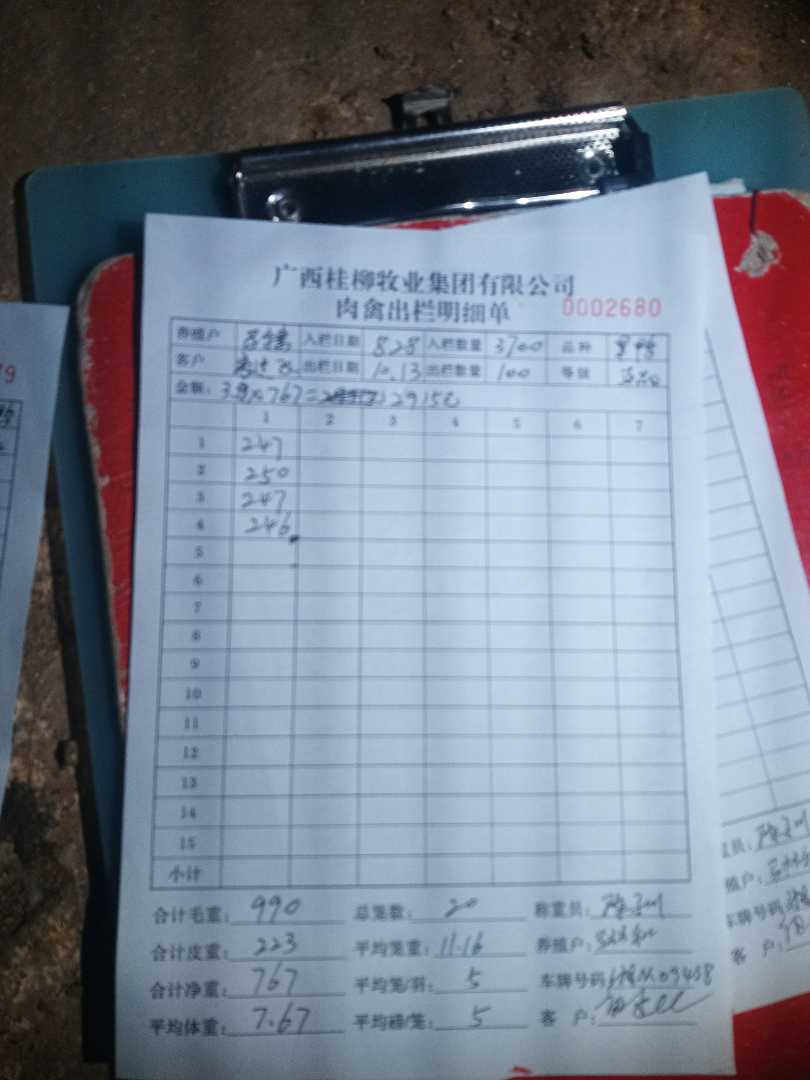 广西桂柳牧业集团有限公司
肉禽出栏明细单 0002680
养殖户 入栏日期 8.28 入栏数量 3700 品种
客户 出栏日期 10.13 出栏数量 100 等级
金额: 3.8x767= 2915元
1 2 3 4 5 6 7
1 247
2 250
3 247
4 246
5
6
7
8
9
10
11
12
13
14
15
小计
合计毛重: 990 总笼数: 20 称重员:
合计皮重: 223 平均笼重: 11.16 养殖户:
合计净重: 767 平均笼/羽: 5 车牌号码:
平均体重: 7.67 平均磅/笼: 5 客 户:
79
员:
殖户:
车牌号码
客 户: